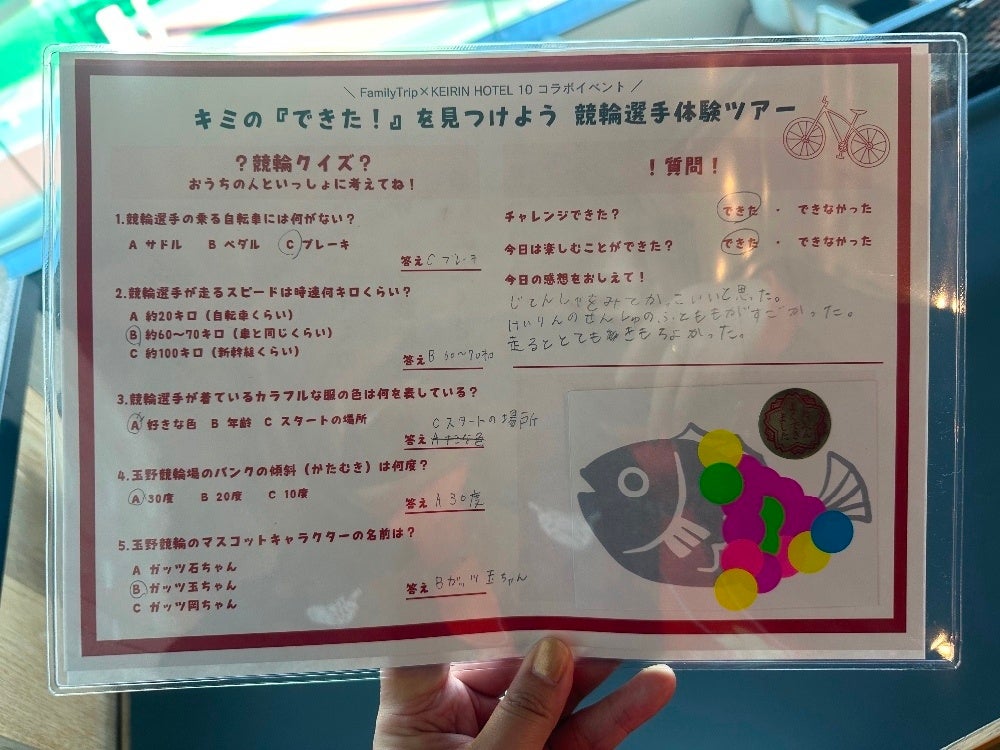 ＼ FamilyTrip×KEIRIN HOTEL 10 コラボイベント ／
キミの『できた！』を見つけよう 競輪選手体験ツアー
？競輪クイズ？
おうちの人といっしょに考えてね！
1.競輪選手の乗る自転車には何がない？
A サドル B ペダル C ブレーキ
答え C ブレーキ
2.競輪選手が走るスピードは時速何キロくらい？
A 約20キロ（自転車くらい）
B 約60～70キロ（車と同じくらい）
C 約100キロ（新幹線くらい）
答え B 60～70キロ
3.競輪選手が着ているカラフルな服の色は何を表している？
A 好きな色 B 年齢 C スタートの場所
Cスタートの場所
答え A 好きな色
4.玉野競輪場のバンクの傾斜（かたむき）は何度？
A 30度 B 20度 C 10度
答え A 30度
5.玉野競輪のマスコットキャラクターの名前は？
A ガッツ石ちゃん
B ガッツ玉ちゃん
C ガッツ岡ちゃん
答え Bガッツ玉ちゃん
！質問！
チャレンジできた？ できた ・ できなかった
今日は楽しむことができた？ できた ・ できなかった
今日の感想をおしえて！
じてんしゃをみてかっこいいと思った。
けいりんのせんしゅの、ふとももがすごかった。
走るととてもきもちよかった。